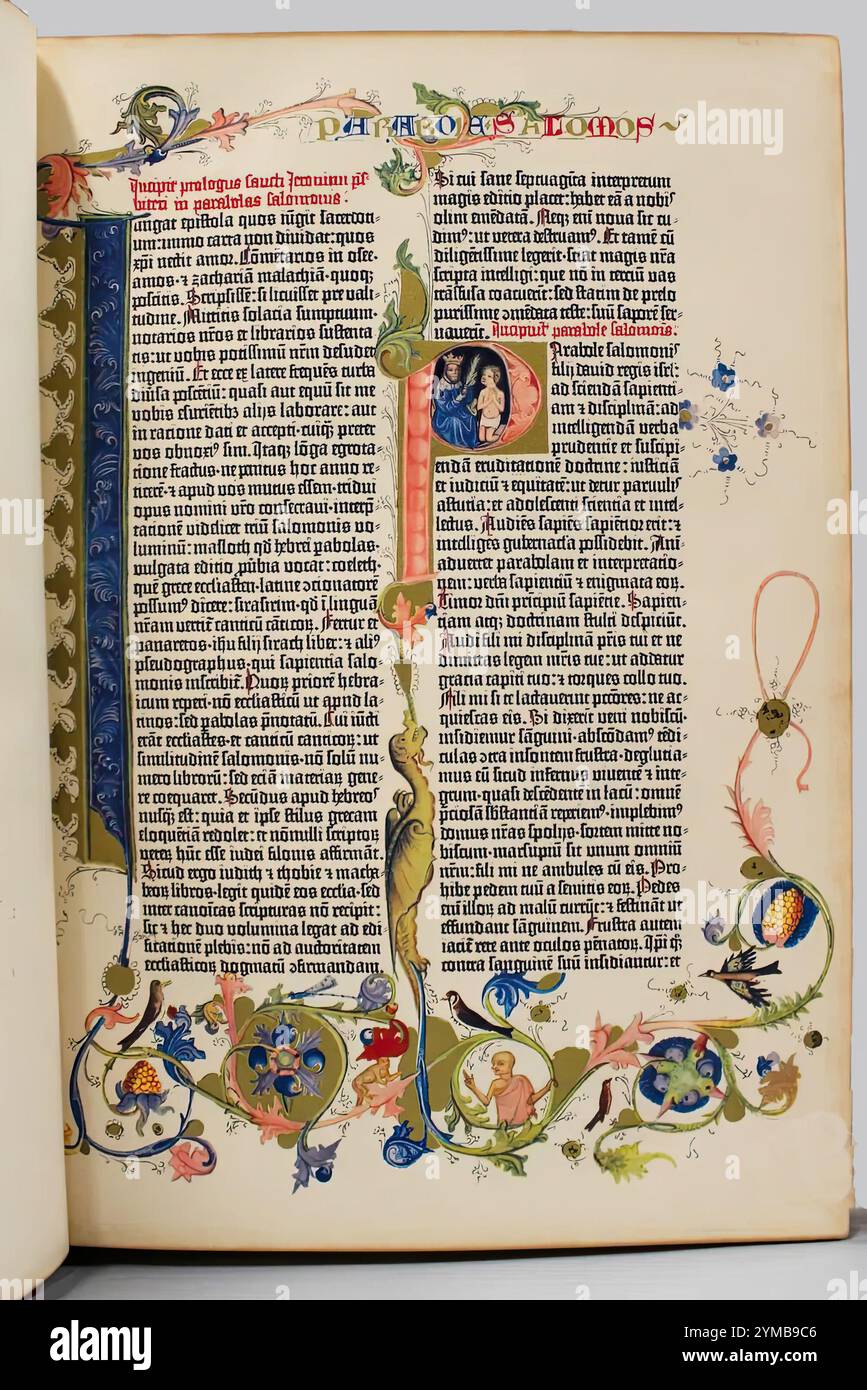 PARABOLE SALOMOS
Incipit prologus sancti Jeronimi p̄s-
biteri in parabolas salomonis.
Iungat epistola quos iūgit sacerdoti-
um: immo carta non dividat: quos
xp̄i nectit amor. Cōmētarios in osee.
amos. ⁊ zachariā malachiā. quoqꝫ
poscitis. Scripsissē: si licuisset pre vali-
tudine. Mittitis solacia sumptuum.
notarios nr̄os et librarios sustenta-
tis: ut vobis potissimū nr̄m desudet
ingeniū. Et ecce ex latere frequēs turba
diūsa poscētiū: quasi aut equū sit me
vobis esurientibꝫ alijs laborare: aut
in ratione dati et accepti. cuiqꝫ preter
vos obnoxiꝰ sim. Itaqꝫ lōga egrota-
tione fractus. ne penitus hoc anno re-
ticerē. ⁊ apud vos mutus essem. tridui
opus nomini vr̄o consecravi. interp̄-
tationē videlicet triū salomonis vo-
luminū: masloth qd̄ hebrei p̄abolas.
vulgata editio p̄ubia vocat: coeleth.
quē grece ecclesiasten. latine ↄcionatorē
possumꝰ dicere: sirasirim. qd̄ i linguā
nr̄am vertit canticū cāticoꝝ. Fertur et
panaretos. ihu filij sirach liber: ⁊ aliꝰ
pseudographus. qui sapientia salo-
monis inscribit̄. Quoꝝ priorē hebra-
icum reperi. nō ecclesiasticū ut apud la-
tinos: sed p̄abolas p̄notatū. Cui iūcti
erāt ecclesiastes. et canticū canticoꝝ: ut
similitudinē salomonis. nō solū nu-
mero librorū: sed eciā materiaꝝ gene-
re coequaret. Secūdus apud hebreoˢ
nusqꝫ est: quia et ipse stilus grecam
eloquētiā redolet: et nōnulli scriptoꝝ
veteꝝ hūc esse iudei filonis affirmāt.
Sicud ergo iudith ⁊ thobie ⁊ macha-
beoꝝ libros. legit quidē eos ecclesia. sed
inter canoīcas scripturas nō recipit:
sic ⁊ hec duo volumina legat ad edi-
ficationē plebis: nō ad auctoritatem
ecclesiasticoꝝ dogmatū ↄfirmandam.
Si cui sane septuagīta interpretum
magis editio placet: habet eā a nobiˢ
olim emēdatā. Neqꝫ enī nova sic cu-
dimꝰ: ut vetera destruamꝰ. Et tamē cū
diligētissime legerit. sciat magis nr̄a
scripta intelligi: que nō in terciū vas
trāsfusa coacuerīt: sed statim de prelo
purissime ↄmēdata teste: suū saporē ser-
vaverīt. Incipiūt parabole salomōis.
Parabole salomoniˢ
filij david regis isrl̄:
ad sciendā sapienti-
am ⁊ disciplinā: ad
intelligendā verba
prudentie et suscipi-
endā eruditationē doctrine: iusticiā
et iudiciū ⁊ equitatē: ut detur parvuliˢ
astutia: et adolescenti scientia et intel-
lectus. Audiēs sapiēs sapientior erit: ⁊
intelligēs gubernacla possidebit. Ani-
advertet parabolam et interpretatio-
nem: verba sapientiū ⁊ enigmata eoꝝ.
Timor dn̄i principiū sapiētie. Sapien-
tiam atqꝫ doctrinam stulti despiciūt.
Audi fili mi disciplinā pr̄is tui et ne
dimittas legem mr̄is tue: ut addatur
gratia capiti tuo: ⁊ torques collo tuo.
Fili mi si te lactaverint pctōres: ne ac-
quiescas eis. Si dixerīt veni nobiscū.
insidiemur sāguini. abscōdamꝰ tēdi-
culas ↄtra insontem frustra. deglucia-
mus eū sicud infernus viventē ⁊ inte-
grum. quasi descēdentē in lacū: omnē
p̄ciosā sb̄stantiā reperiemꝰ. implebimꝰ
domus nr̄as spolijs. sortem mitte no-
biscum. marsupiū sit unum omniū
nr̄m: fili mi ne ambules cū eis. Pro-
hibe pedem tuū a semitis eoꝝ. Pedes
enī illoꝝ ad malū currūt: ⁊ festināt ut
effundant sanguinem. Frustra autem
iacit̄ rete ante oculos pēnatoꝝ. Ip̄i qꝫ
contra sanguinē suū insidiantur: et
alamy
Image ID: 2YMB9C6
www.alamy.com